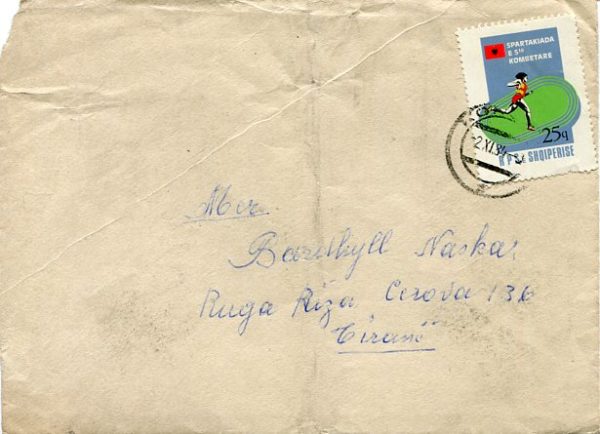 SPARTAKIADA
E 5të
KOMBËTARE
25q
RPS E SHQIPERISE
-2.XI.84
Mer.
Bardhyll Naska
Ruga Riza Cerova 136
Tiranë